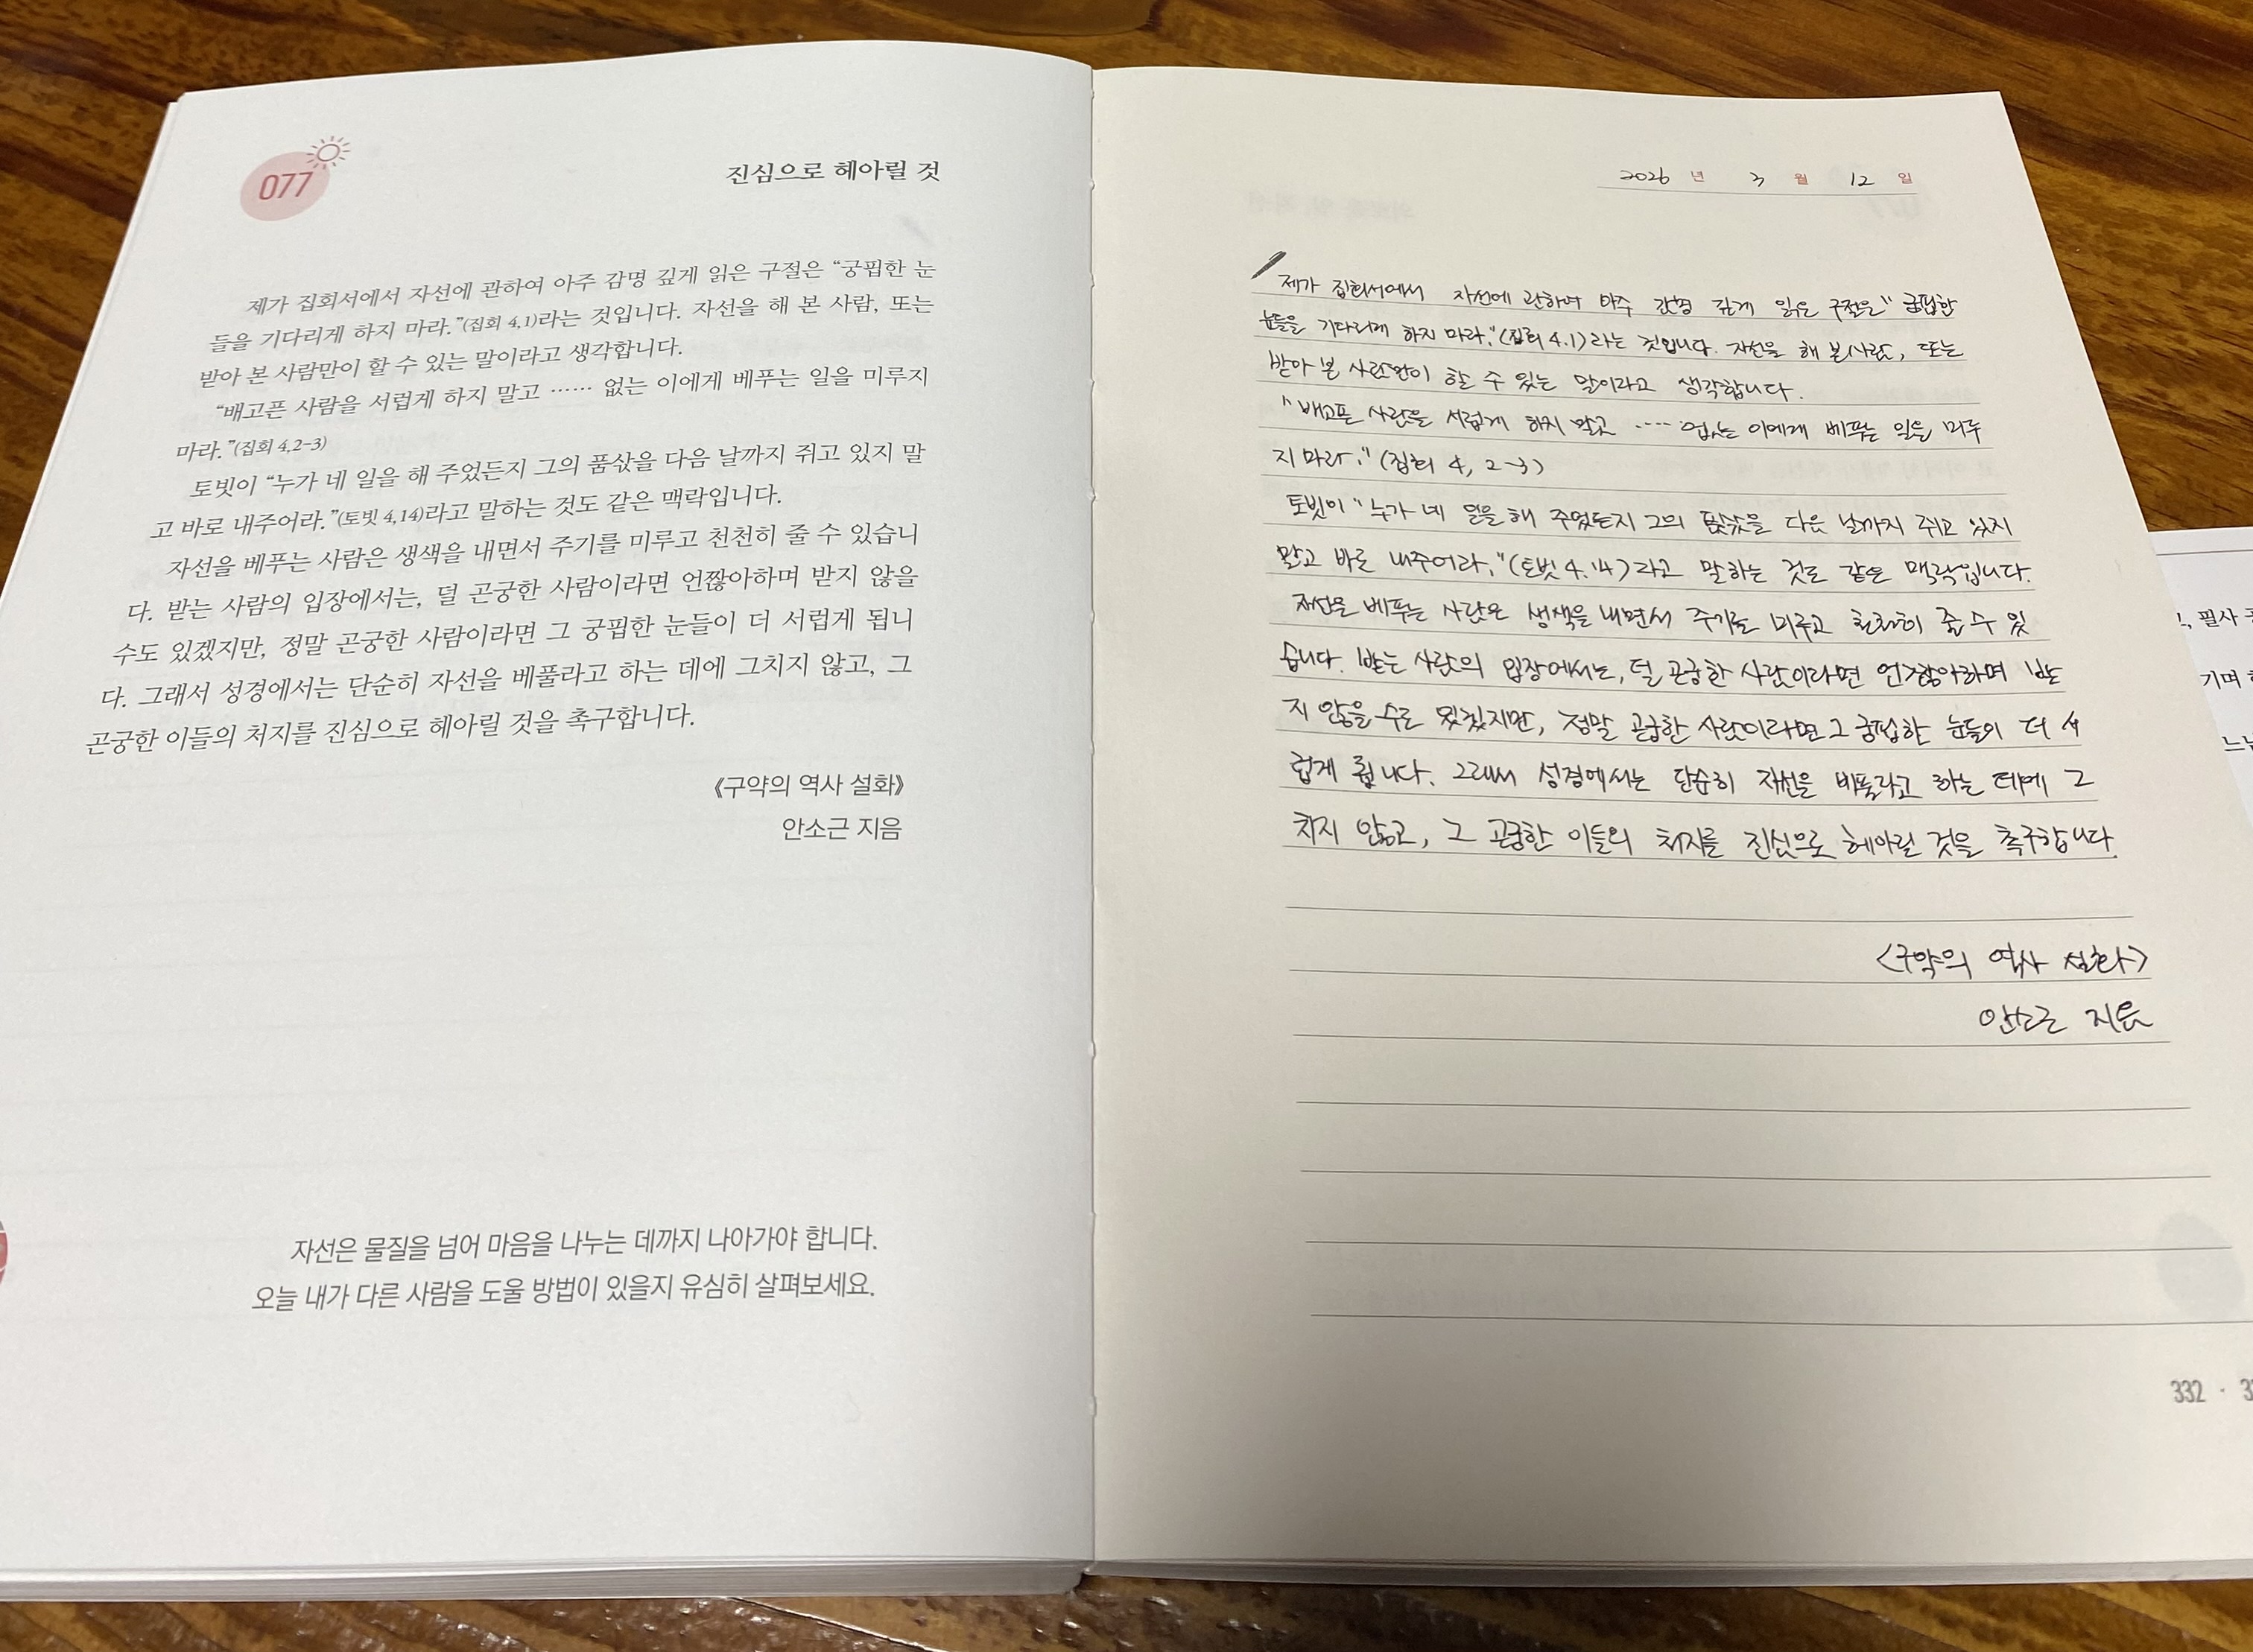 077
진심으로 헤아릴 것
제가 집회서에서 자선에 관하여 아주 감명 깊게 읽은 구절은 “궁핍한 눈
들을 기다리게 하지 마라.”(집회 4,1)라는 것입니다. 자선을 해 본 사람, 또는
받아 본 사람만이 할 수 있는 말이라고 생각합니다.
“배고픈 사람을 서럽게 하지 말고 …… 없는 이에게 베푸는 일을 미루지
마라.”(집회 4,2-3)
토빗이 “누가 네 일을 해 주었든지 그의 품삯을 다음 날까지 쥐고 있지 말
고 바로 내주어라.”(토빗 4,14)라고 말하는 것도 같은 맥락입니다.
자선을 베푸는 사람은 생색을 내면서 주기를 미루고 천천히 줄 수 있습니
다. 받는 사람의 입장에서는, 덜 곤궁한 사람이라면 언짢아하며 받지 않을
수도 있겠지만, 정말 곤궁한 사람이라면 그 궁핍한 눈들이 더 서럽게 됩니
다. 그래서 성경에서는 단순히 자선을 베풀라고 하는 데에 그치지 않고, 그
곤궁한 이들의 처지를 진심으로 헤아릴 것을 촉구합니다.
《구약의 역사 설화》
안소근 지음
자선은 물질을 넘어 마음을 나누는 데까지 나아가야 합니다.
오늘 내가 다른 사람을 도울 방법이 있을지 유심히 살펴보세요.
2026 년 3 월 12 일
제가 집회서에서 자선에 관하여 아주 감명 깊게 읽은 구절은 “궁핍한
눈들을 기다리게 하지 마라.”(집회 4.1)라는 것입니다. 자선을 해 본 사람, 또는
받아 본 사람만이 할 수 있는 말이라고 생각합니다.
“배고픈 사람을 서럽게 하지 말고 ···· 없는 이에게 베푸는 일을 미루
지 마라.”(집회 4, 2-3)
토빗이 “누가 네 일을 해 주었든지 그의 품삯을 다음 날까지 쥐고 있지
말고 바로 내주어라.”(토빗 4.14)라고 말하는 것도 같은 맥락입니다.
자선을 베푸는 사람은 생색을 내면서 주기를 미루고 천천히 줄 수 있
습니다. 받는 사람의 입장에서는, 덜 곤궁한 사람이라면 언짢아하며 받
지 않을 수도 있겠지만, 정말 곤궁한 사람이라면 그 궁핍한 눈들이 더 서
럽게 됩니다. 그래서 성경에서는 단순히 자선을 베풀라고 하는 데에 그
치지 않고, 그 곤궁한 이들의 처지를 진심으로 헤아릴 것을 촉구합니다.
<구약의 역사 설화>
안소근 지음
332 ·
필사
기며